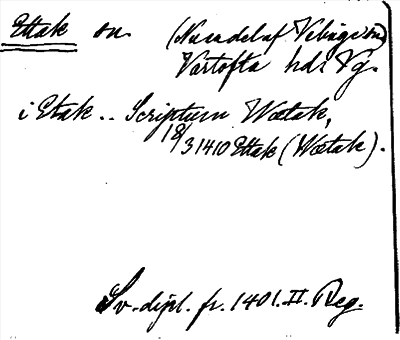 Ettak on (Numdel af Vilingson)
Vartofta hds Vg.
i Etak.. Scriptum Wœtak,
18/3 1410 Ettak (Wœtak).
Sv. dipl. fr. 1401. II. Reg.